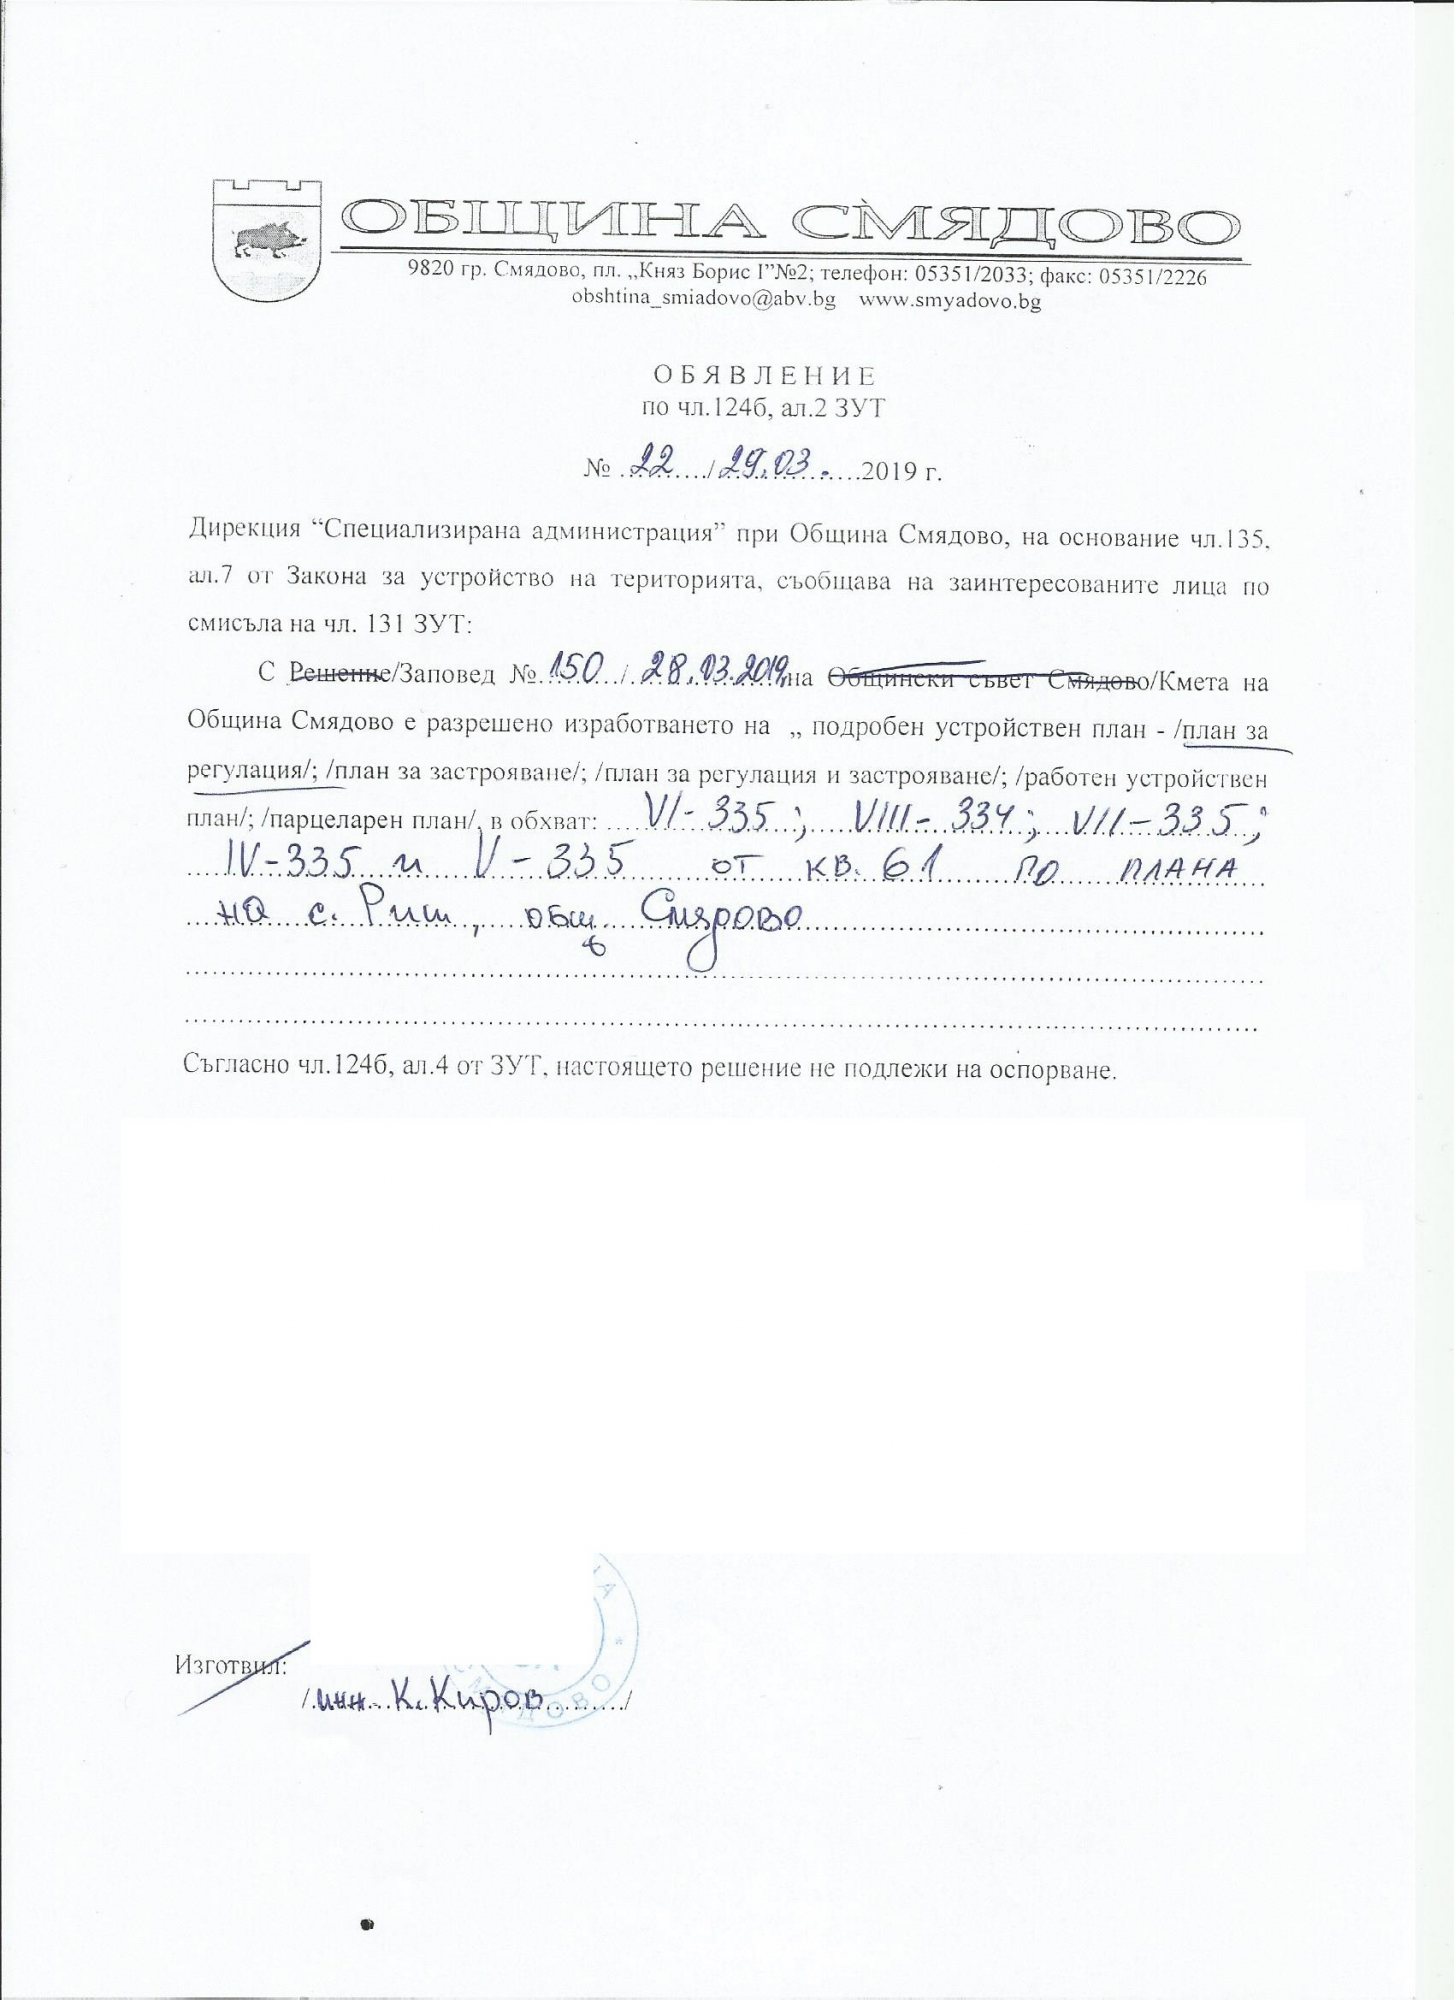 ОБЩИНА СМЯДОВО
9820 гр. Смядово, пл. „Княз Борис I”№2; телефон: 05351/2033; факс: 05351/2226
obshtina_smiadovo@abv.bg www.smyadovo.bg
ОБЯВЛЕНИЕ
по чл.124б, ал.2 ЗУТ
№ .22..../29.03.....2019 г.
Дирекция “Специализирана администрация” при Община Смядово, на основание чл.135,
ал.7 от Закона за устройство на територията, съобщава на заинтересованите лица по
смисъла на чл. 131 ЗУТ:
С Решение/Заповед №.150../.28.03.2019.на Общински съвет Смядово/Кмета на
Община Смядово е разрешено изработването на „ подробен устройствен план - /план за
регулация/; /план за застрояване/; /план за регулация и застрояване/; /работен устройствен
план/; /парцеларен план/, в обхват: ....VI-335; VIII-334; VII-335;
IV-335 и V-335 от кв. 61 по плана
на с. Риш, общ. Смядово
Съгласно чл.124б, ал.4 от ЗУТ, настоящето решение не подлежи на оспорване.
Изготвил:
/.инж. К.Киров........../
СМЯДОВО *